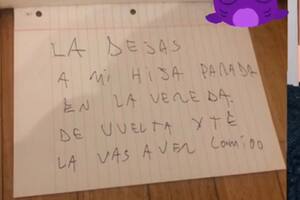 LA DEJAS
A MI HIJA PARADA
EN LA VEREDA.
DE VUELTA Y TE
LA VAS A VER CONMIGO